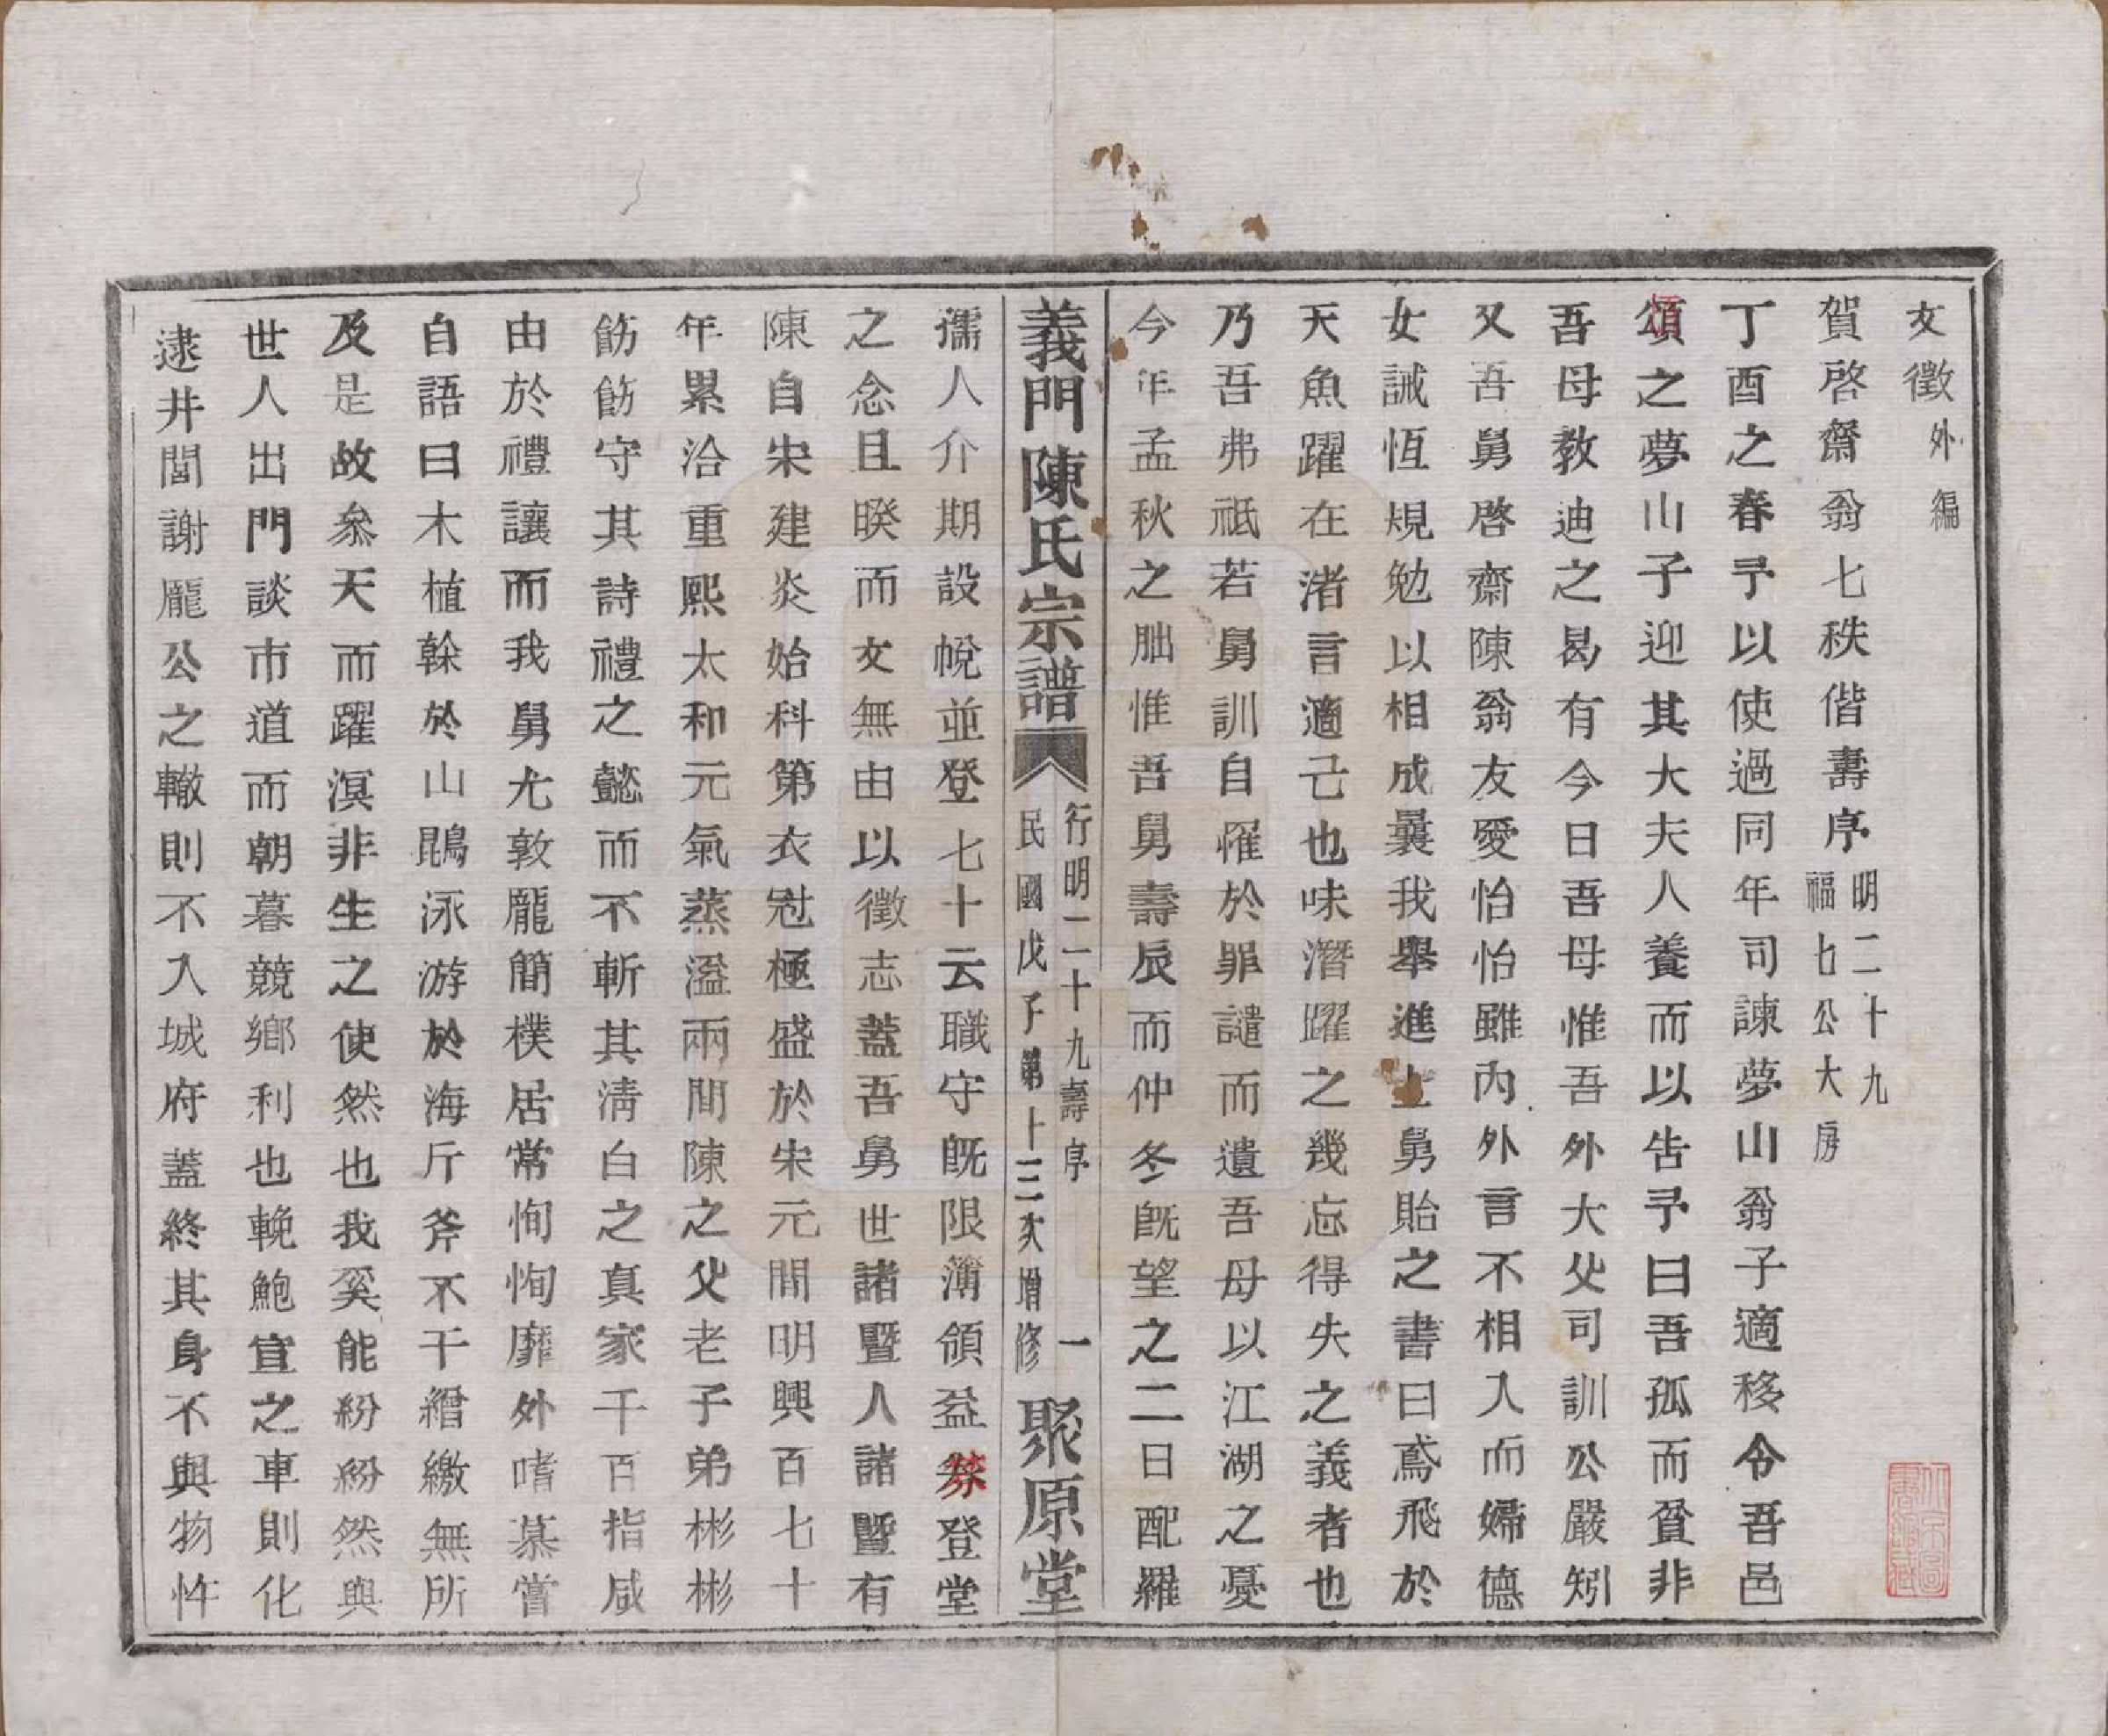 文徵外編
賀啓齋翁七秩偕壽序明二十九福七公大房
丁酉之春予以使過同年司諫夢山翁子適移令吾邑
頌之夢山子迎其大夫人養而以告予曰吾孤而貧非
吾母教迪之曷有今日吾母惟吾外大父司訓公嚴矧
又吾舅啓齋陳翁友愛怡怡雖內外言不相入而婦德
女誡恆規勉以相成曩我舉進士舅貽之書曰鳶飛於
天魚躍在渚言適己也味潛躍之幾忘得失之義者也
乃吾弗祗若舅訓自罹於罪譴而遺吾母以江湖之憂
今年孟秋之朏惟吾舅壽辰而仲冬旣望之二日配羅
孺人介期設帨並登七十云職守旣限簿領益棼登堂
之念且暌而文無由以徵志蓋吾舅世諸暨人諸暨有
陳自宋建炎始科第衣冠極盛於宋元間明興百七十
年累洽重熙太和元氣蒸溢兩間陳之父老子弟彬彬
飭飭守其詩禮之懿而不斬其淸白之真家千百指咸
由於禮讓而我舅尤敦龐簡樸居常恂恂靡外嗜慕嘗
自語曰木植榦於山鵾泳游於海斤斧不干繒繳無所
及是故叅天而躍溟非生之使然也我奚能紛紛然與
世人出門談市道而朝暮競鄉利也輓鮑宣之車則化
逮井閭謝龐公之轍則不入城府蓋終其身不與物忤
義門陳氏宗譜
行明二十九壽序 一
民國戊子第十三次增修
聚原堂